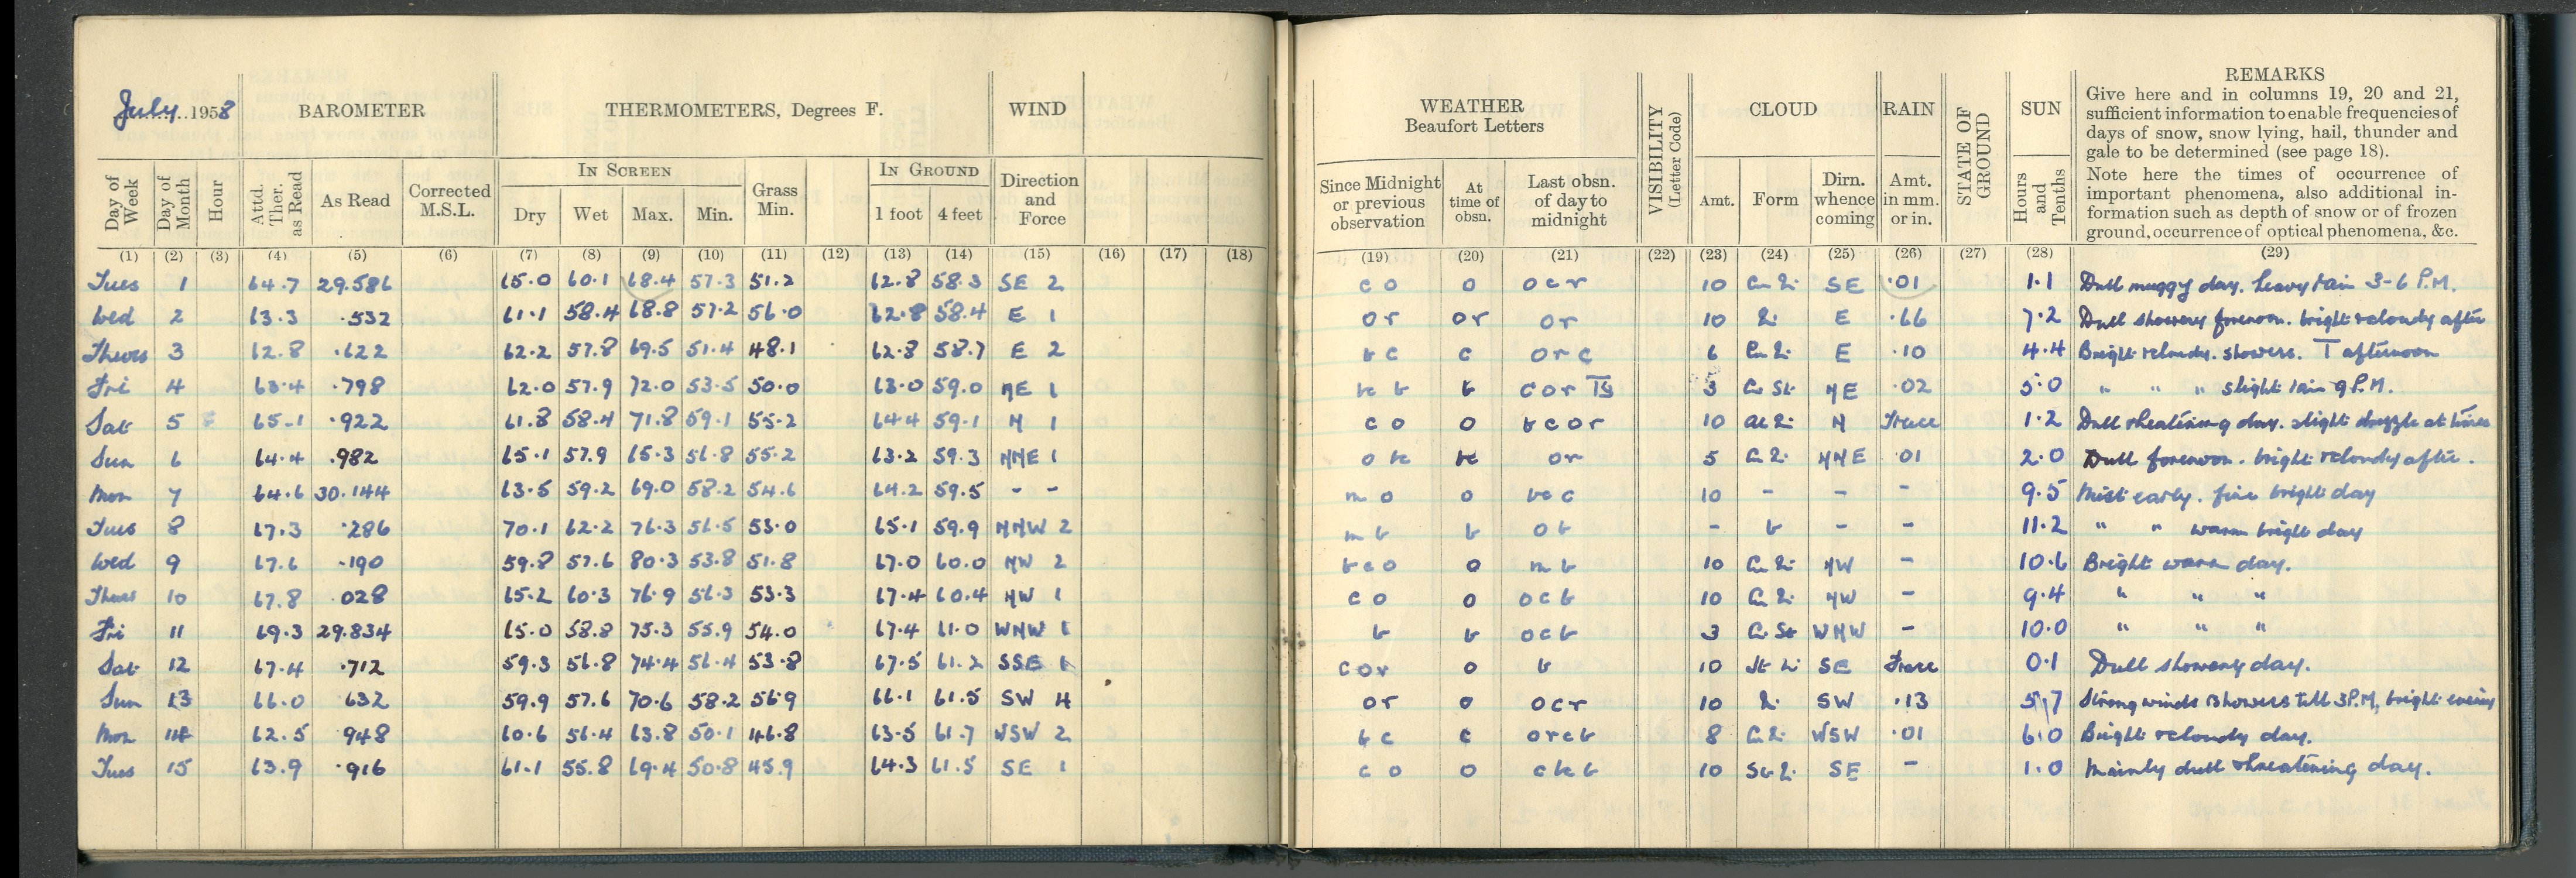 July 1958 BAROMETER THERMOMETERS, Degrees F. WIND
Day of Week Day of Month Hour Attd. Ther. as Read As Read Corrected M.S.L. IN SCREEN Dry Wet Max. Min. Grass Min. IN GROUND 1 foot 4 feet Direction and Force
(1) (2) (3) (4) (5) (6) (7) (8) (9) (10) (11) (12) (13) (14) (15) (16) (17) (18)
Tues 1 64.7 29.586 65.0 60.1 68.4 57.3 51.2 62.8 58.3 SE 2
Wed 2 63.3 .532 61.1 58.4 68.8 57.2 56.0 62.8 58.4 E 1
Thurs 3 62.8 .622 62.2 57.8 69.5 51.4 48.1 62.8 58.7 E 2
Fri 4 63.4 .798 62.0 57.9 72.0 53.5 50.0 63.0 59.0 NE 1
Sat 5 65.1 .922 61.8 58.4 71.8 59.1 55.2 64.4 59.1 N 1
Sun 6 64.4 .982 65.1 57.9 65.3 56.8 55.2 63.2 59.3 NNE 1
Mon 7 64.6 30.144 63.5 59.2 69.0 58.2 54.6 64.2 59.5 - -
Tues 8 67.3 .286 70.1 62.2 76.3 56.5 53.0 65.1 59.9 NNW 2
Wed 9 67.6 .190 59.8 57.6 80.3 53.8 51.8 67.0 60.0 NW 2
Thurs 10 67.8 028 65.2 60.3 76.9 56.3 53.3 67.4 60.4 NW 1
Fri 11 69.3 29.834 65.0 58.8 75.3 55.9 54.0 67.4 61.0 WNW 1
Sat 12 67.4 .712 59.3 56.8 74.4 56.4 53.8 67.5 61.2 SSE 1
Sun 13 66.0 632 59.9 57.6 70.6 58.2 56.9 66.1 61.5 SW 4
Mon 14 62.5 948 60.6 56.4 63.8 50.1 46.8 63.5 61.7 WSW 2
Tues 15 63.9 .916 61.1 55.8 69.4 50.8 45.9 64.3 61.5 SE 1
WEATHER Beaufort Letters VISIBILITY (Letter Code) CLOUD RAIN STATE OF GROUND SUN REMARKS
Give here and in columns 19, 20 and 21,
sufficient information to enable frequencies of
days of snow, snow lying, hail, thunder and
gale to be determined (see page 18).
Note here the times of occurrence of
important phenomena, also additional in-
formation such as depth of snow or of frozen
ground, occurrence of optical phenomena, &c.
Since Midnight or previous observation At time of obsn. Last obsn. of day to midnight Amt. Form Dirn. whence coming Amt. in mm. or in. Hours and Tenths
(19) (20) (21) (22) (23) (24) (25) (26) (27) (28) (29)
c o o o c r 10 SE .01 1.1 Dull muggy day. heavy rain 3-6 P.M.
o r o r o r 10 E .66 7.2 Dull showery forenoon. bright & cloudy after
b c c o r c 6 E .10 4.4 Bright & cloudy. showers. T afternoon
bc b b c o r 3 Cu St NE .02 5.0 " " " slight rain 9 P.M.
c o o b c o r 10 N Trace 1.2 Dull threatening day. slight drizzle at times
o bc bc o r 5 NNE .01 2.0 Dull forenoon. bright & cloudy after.
m o o bc c 10 - - - 9.5 Mist early. fine bright day
m b b o b - b - - 11.2 " " warm bright day
b c o o m b 10 NW - 10.6 Bright warm day.
c o o o c b 10 NW - 9.4 " " "
b b o c b 3 Cu St WNW - 10.0 " " "
c o r o b 10 SE Trace 0.1 Dull showery day.
o r o o c r 10 SW .13 5.7 Strong winds & showers till 3 P.M, bright evening
b c c o r c b 8 WSW .01 6.0 Bright & cloudy day.
c o o c bc b 10 SE - 1.0 Mainly dull threatening day.